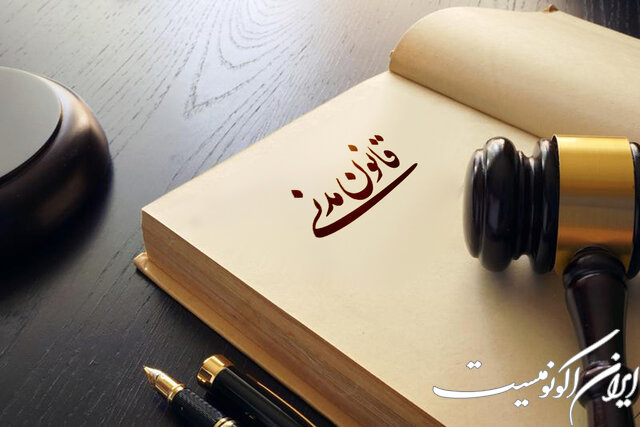 قانون مدنی
ایران اکونومیست